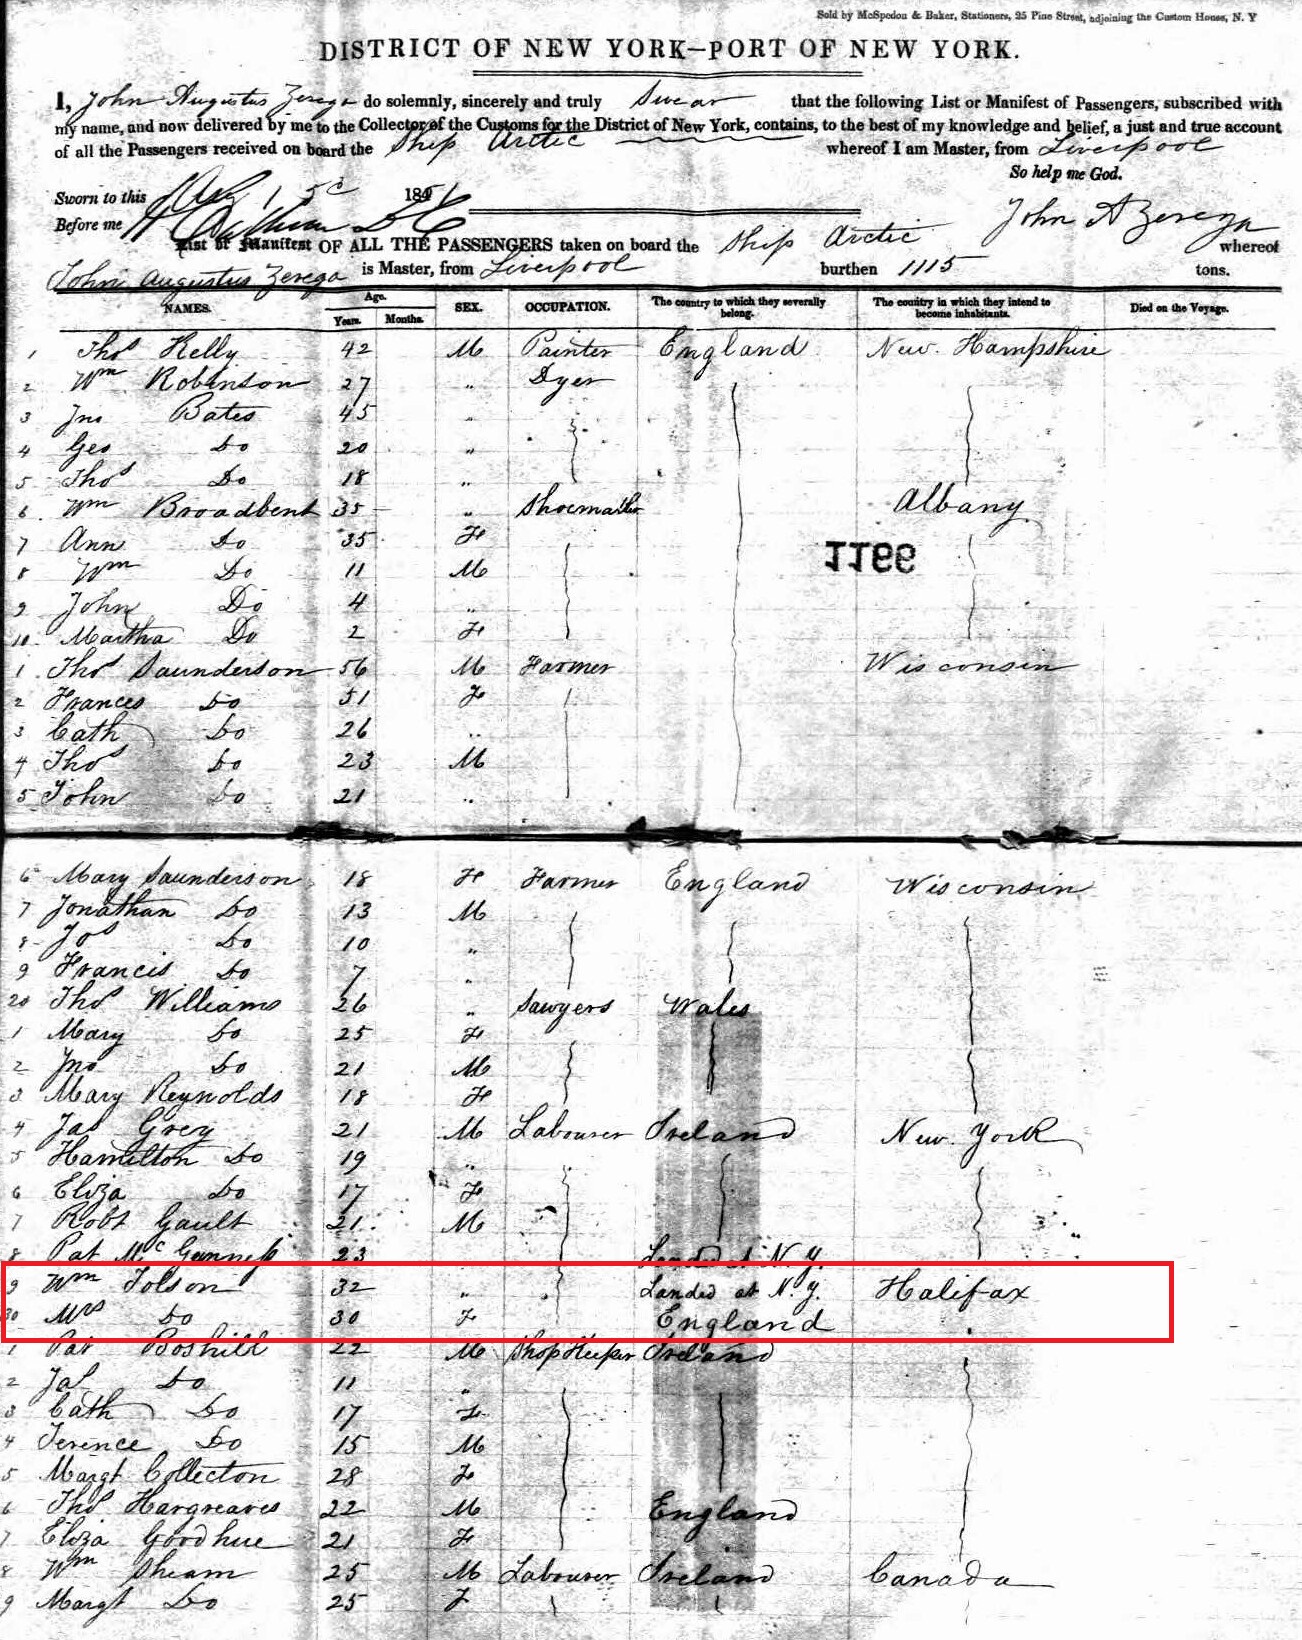 Sold by McSpedon & Baker, Stationers, 25 Pine Street, adjoining the Custom House, N. Y
DISTRICT OF NEW YORK—PORT OF NEW YORK.
I, John Augustus Zerega do solemnly, sincerely and truly Swear that the following List or Manifest of Passengers, subscribed with
my name, and now delivered by me to the Collector of the Customs for the District of New York, contains, to the best of my knowledge and belief, a just and true account
of all the Passengers received on board the Ship Arctic whereof I am Master, from Liverpool
So help me God.
Sworn to this 184
Before me John A Zerega
List or Manifest OF ALL THE PASSENGERS taken on board the Ship Arctic whereof
John Augustus Zerega is Master, from Liverpool burthen 1115 tons.
NAMES. Age. Years. Months. SEX. OCCUPATION. The country to which they severally belong. The country in which they intend to become inhabitants. Died on the Voyage.
1 Thos Kelly 42 M Painter England New. Hampshire
2 Wm Robinson 27 " Dyer
3 Jno Bates 45 "
4 Geo Do 20 "
5 Thos Do 18 "
6 Wm Broadbent 35 " Shoemaker Albany
7 Ann Do 35 F
8 Wm Do 11 M
1166
9 John Do 4 "
10 Martha Do 2 F
1 Thos Saunderson 56 M Farmer Wisconsin
2 Frances Do 51 F
3 Cath Do 26 "
4 Thos Do 23 M
5 John Do 21 "
6 Mary Saunderson 18 F Farmer England Wisconsin
7 Jonathan Do 13 M
8 Jos Do 10 "
9 Francis Do 7 "
20 Thos Williams 26 " Sawyers Wales
1 Mary Do 25 F
2 Jno Do 21 M
3 Mary Reynolds 18 F
4 Jas Grey 21 M Labourer Ireland New York
5 Hamilton Do 19 "
6 Eliza Do 17 F
7 Robt Gault 21 M
8 Pat McGunness 23 Landed at N.Y.
9 Wm Tolson 32 " Landed at N.Y. Halifax
30 Mrs Do 30 F England
1 Pat Boshill 22 M Shop Keeper Ireland
2 Jas Do 11 "
3 Cath Do 17 F
4 Terence Do 15 M
5 Margt Collecton 28 F
6 Thos Hargreaves 22 M England
7 Eliza Goodhue 21 F
8 Wm Sheam 25 M Labourer Ireland Canada
9 Margt Do 25 F